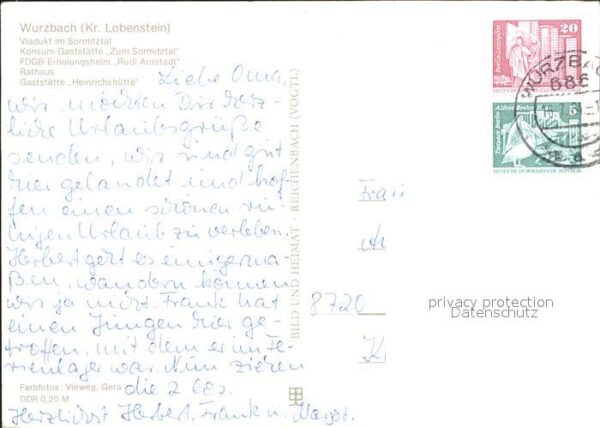 Wurzbach (Kr. Lobenstein)
Viadukt im Sormitztal
Konsum-Gaststätte „Zum Sormitztal"
FDGB-Erholungsheim „Rudi Arnstadt"
Rathaus
Gaststätte „Heinrichshütte"
Liebe Oma,
wir möchten Dir herz-
liche Urlaubsgrüße
senden, wir sind gut
hier gelandet und hof-
fen einen schönen ru-
higen Urlaub zu verleben.
Herbert geht es einigerma-
ßen, wandern können
wir ja nicht. Frank hat
einen Jungen hier ge-
troffen, mit dem er im Fe-
rienlager war. Nun ziehen
die 2 los.
Herzlichst Herbert, Frank u. Margot.
Farbfotos: Vieweg, Gera
DDR 0,20 M
BILD UND HEIMAT · REICHENBACH (VOGTL)
20
Berlin-Leninplatz
WURZBACH
686
5
Tierpark Berlin Alfred Brehm
DEUTSCHE DEMOKRATISCHE REPUBLIK
Frau
8720
K
privacy protection
Datenschutz